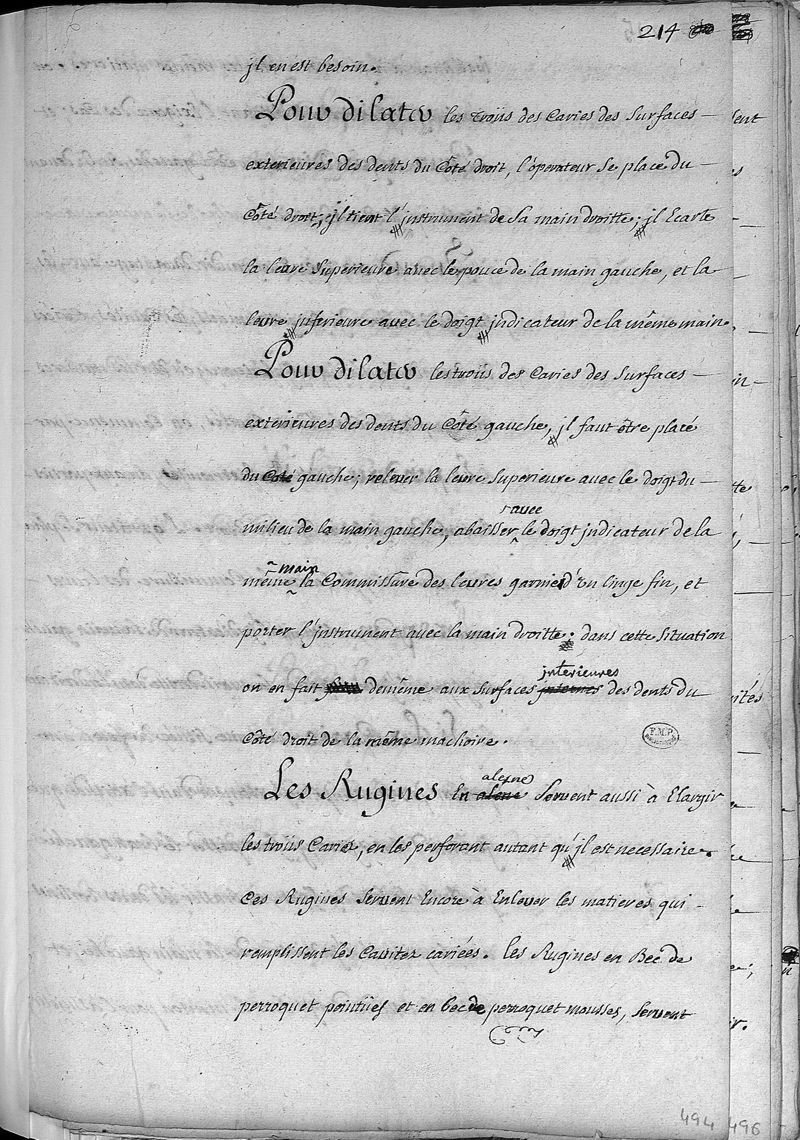 214
jl en est besoin.
Pour dilater les troüs des Caries des Surfaces
exterieures des dents du Côté droit, l'óperateur se place du
Côté droit; jl tient l'jnstrument de Sa main droitte; jl Ecarte
la levre Superieure avec le pouce de la main gauche, et la
levre jnferieure avec le doigt jndicateur de la même main.
Pour dilater les troüs des Caries des Surfaces
exterieures des dents du Côté gauche, jl faut être placé
du Coté gauche; relever la levre Superieure avec le doigt du
avec
milieu de la main gauche, abaisser le doigt jndicateur de la
main
même la Commissure des levres garnie d'un linge fin, et
porter l'jnstrument avec la main droitte: dans cette Situation
jnterieures
on en fait de même aux Surfaces jnternes des dents du
Côté droit de la même machoire.
F.M.P.
alesne
Les Rugines En alene Servent aussi à Elargir
les troüs Cariez, en les perforant autant qu'jl est necessaire.
Ces Rugines Servent Encore à Enlever les matieres qui
remplissent les Cavitez cariées. les Rugines en Bec de
perroquet pointües et en bec de perroquet mousses, Servent
494
496